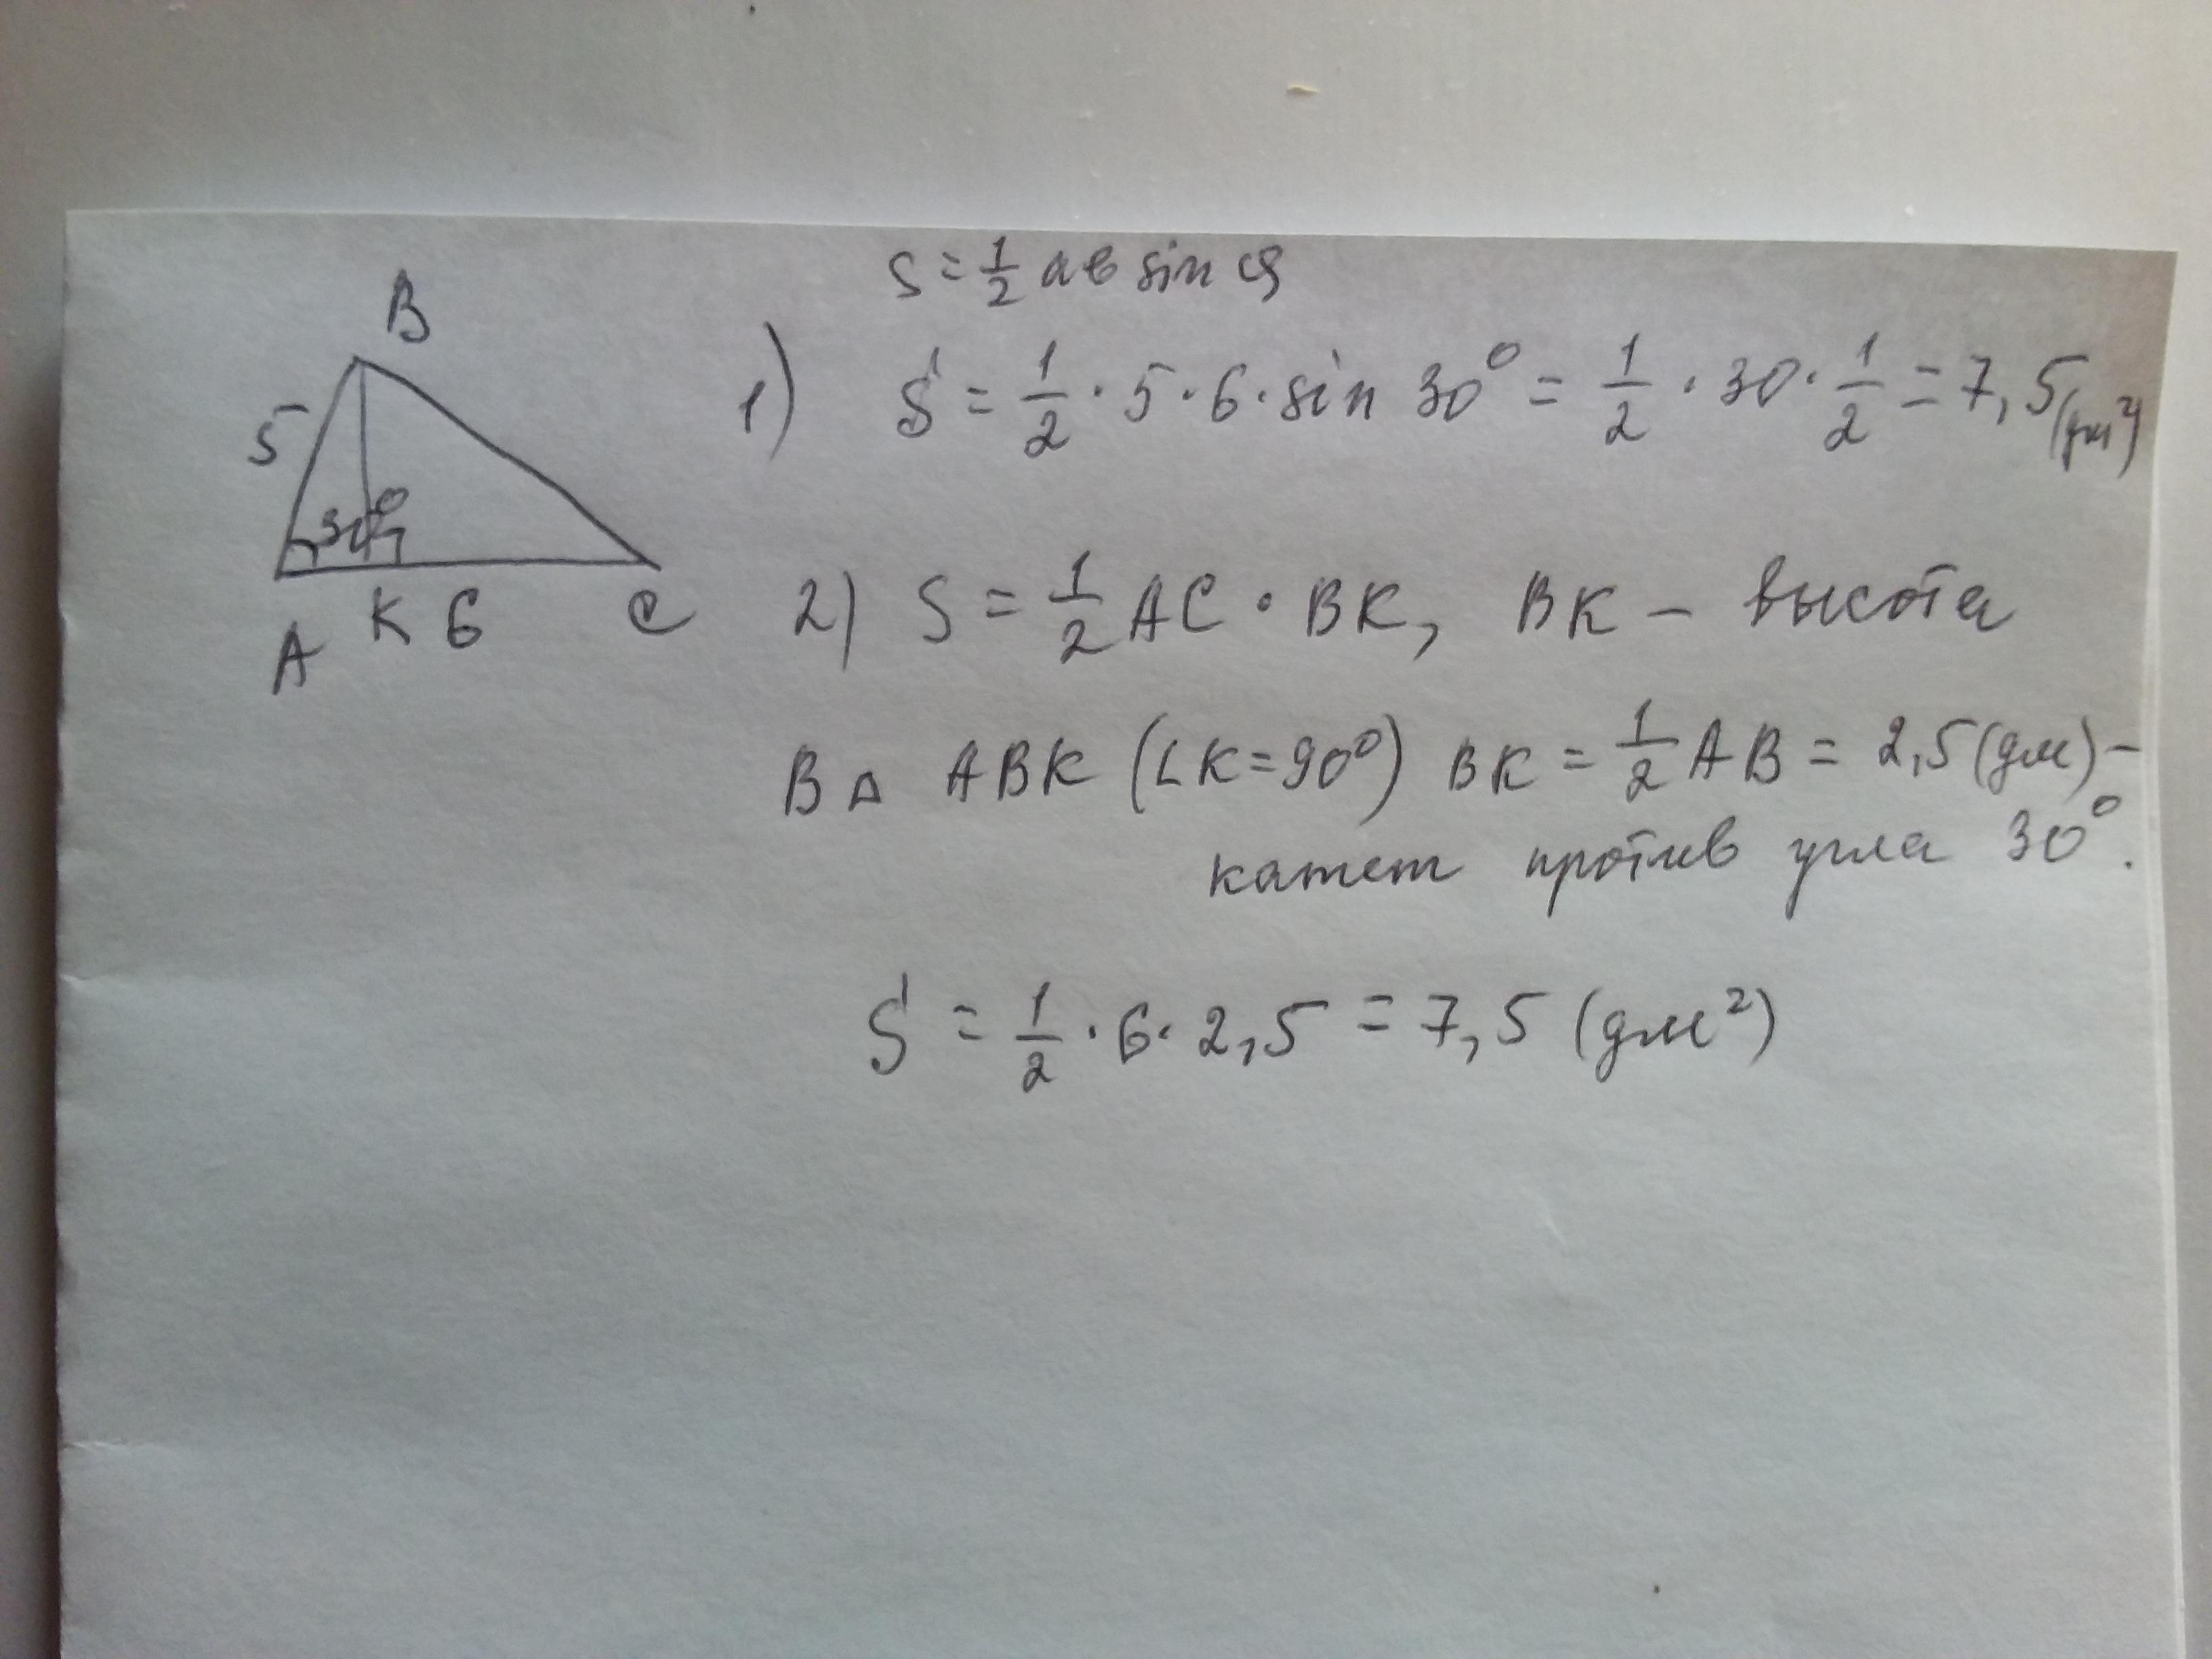 S = 1/2 ab sin α
B
5
30°
A K 6 C
1) S = 1/2 · 5 · 6 · sin 30° = 1/2 · 30 · 1/2 = 7,5 (дм²)
2) S = 1/2 AC · BK, BK – высота
В △ ABK (∠K = 90°) BK = 1/2 AB = 2,5 (дм) –
катет против угла 30°.
S = 1/2 · 6 · 2,5 = 7,5 (дм²)